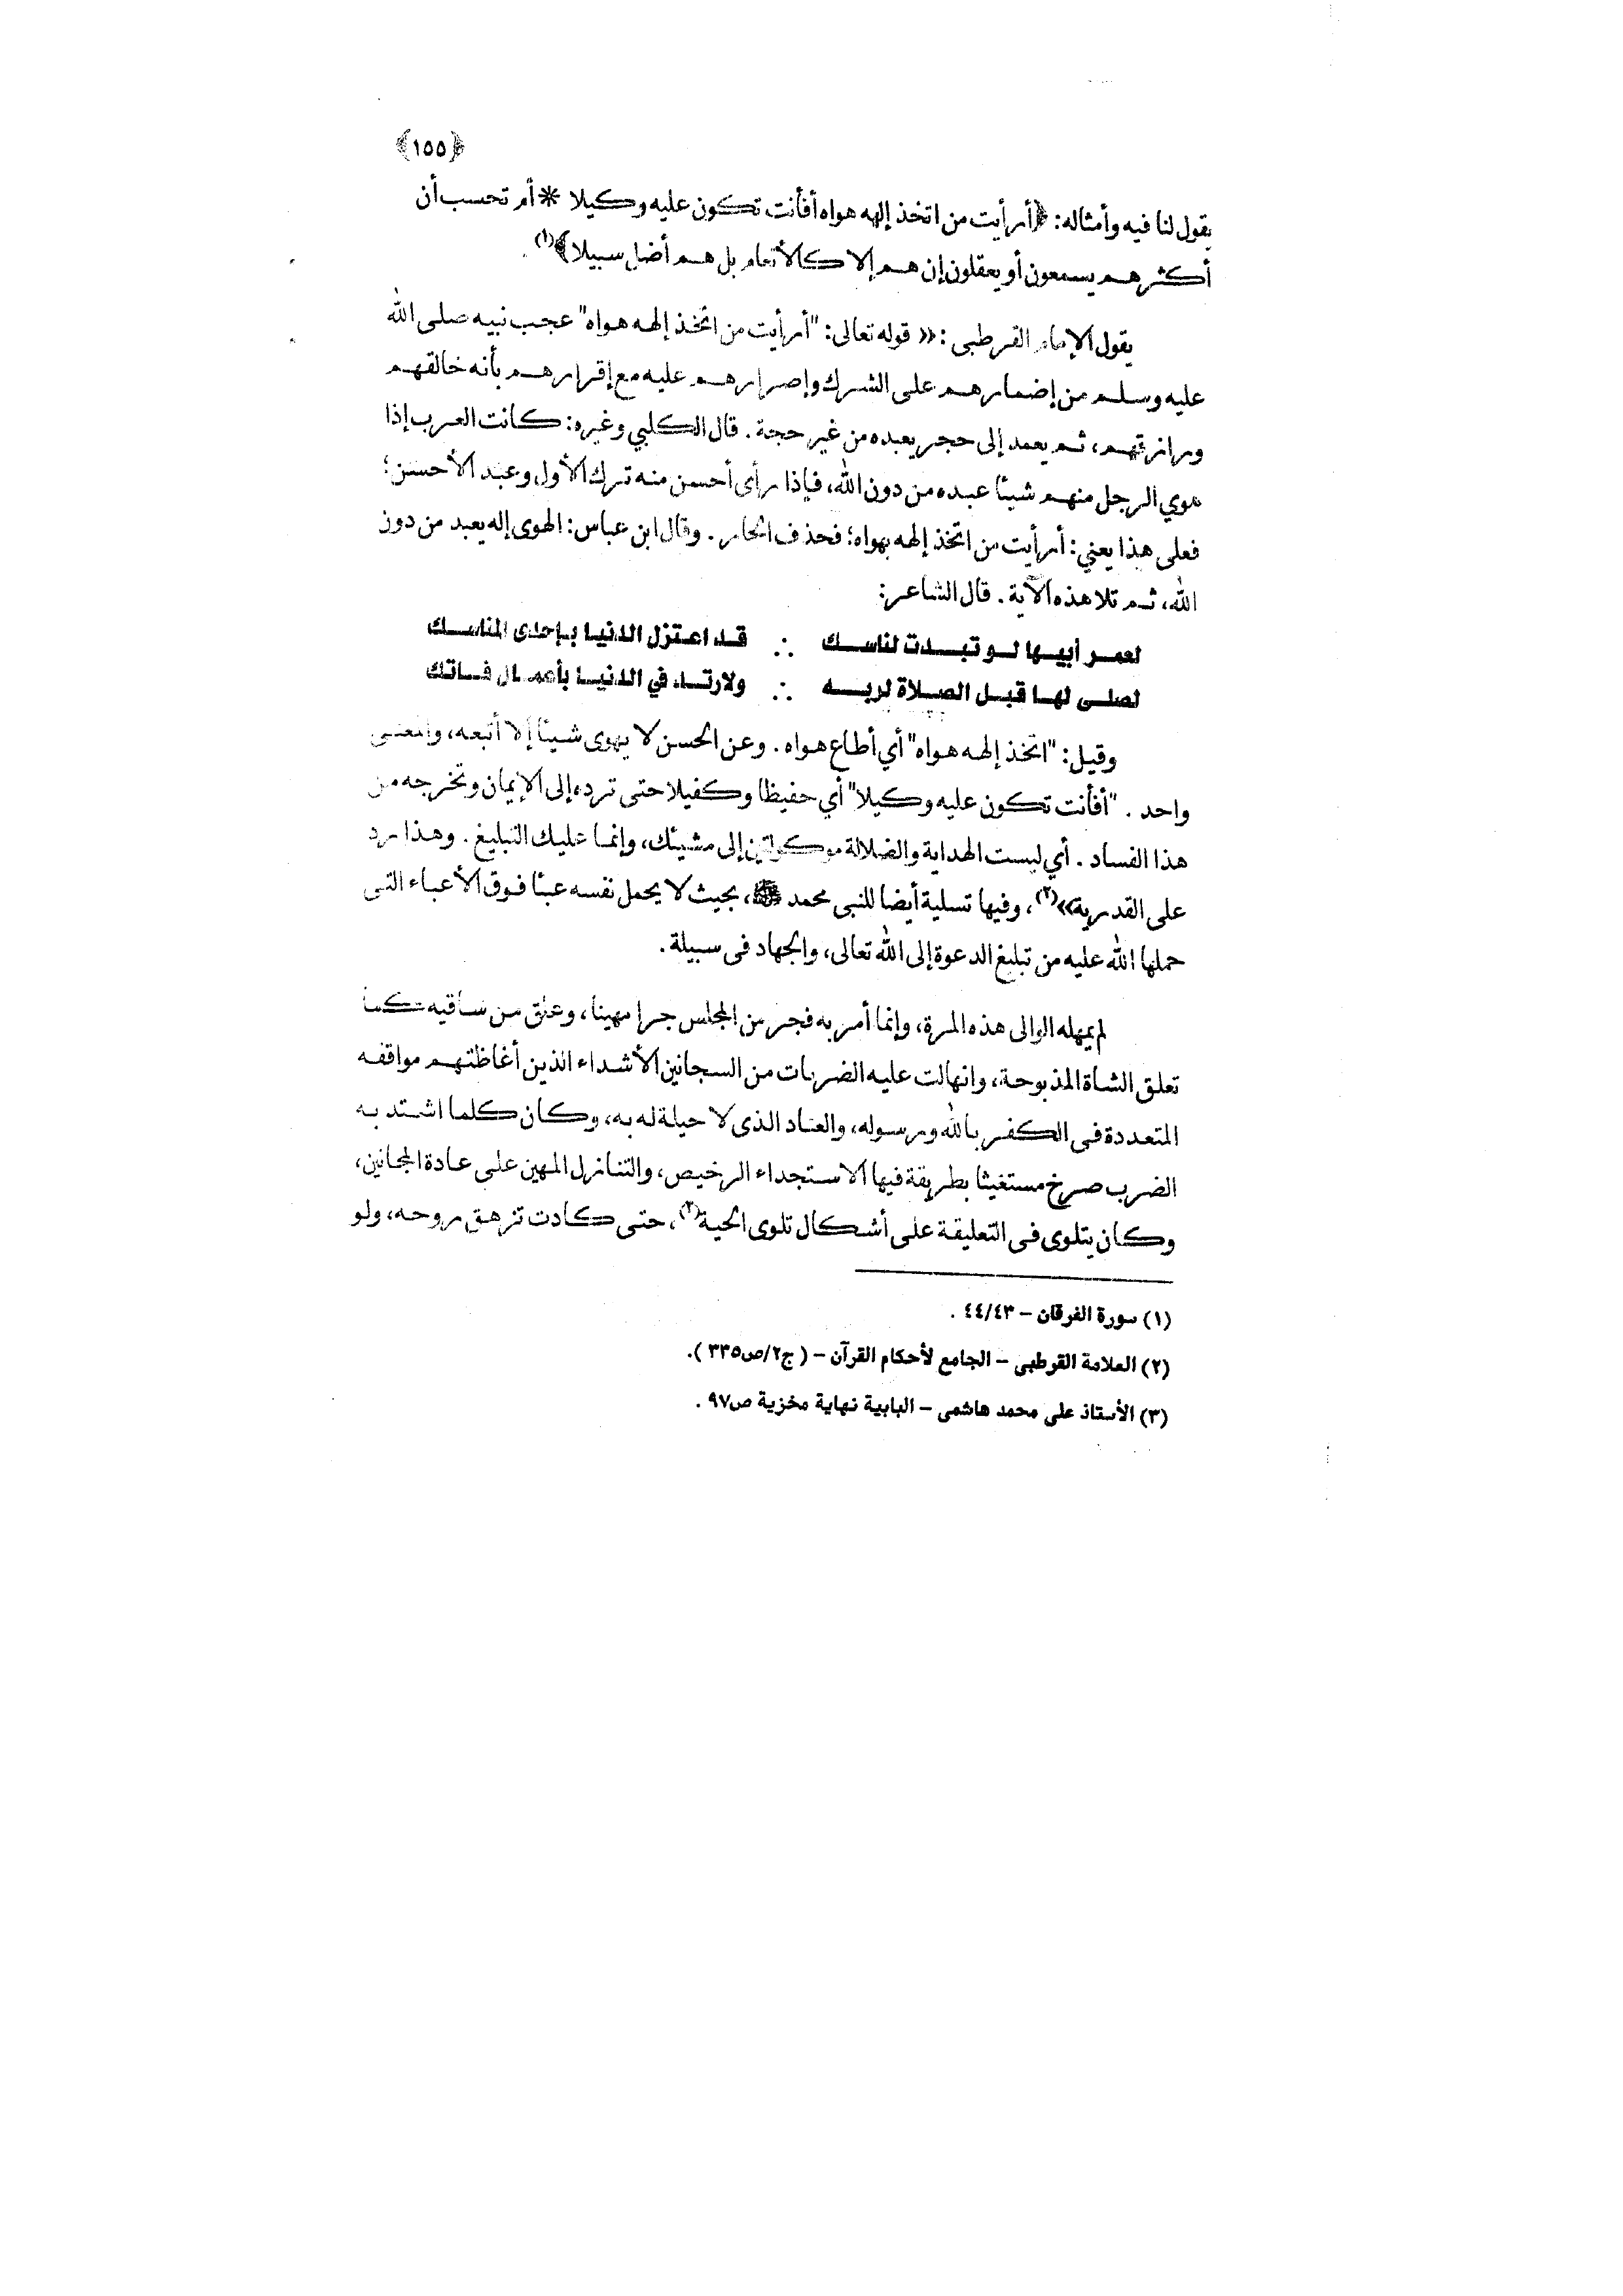 ﴿١٥٥﴾
يقول لنا فيه وأمثاله: ﴿أرأيت من اتخذ إلهه هواه أفأنت تكون عليه وكيلا * أم تحسب أن
أكثرهم يسمعون أو يعقلون إن هم إلا كالأنعام بل هم أضل سبيلا﴾(١).
يقول الإمام القرطبى: «قوله تعالى: "أرأيت من اتخذ إلهه هواه" عجب نبيه صلى الله
عليه وسلم من إضمارهم على الشرك وإصرارهم عليه مع إقرارهم بأنه خالقهم
ورازقهم، ثم يعمد إلى حجر يعبده من غير حجة. قال الكلبي وغيره: كانت العرب إذا
هوي الرجل منهم شيئا عبده من دون الله، فإذا رأى أحسن منه ترك الأول وعبد الأحسن؛
فعلى هذا يعني: أرأيت من اتخذ إلهه بهواه؛ فحذف الجار. وقال ابن عباس: الهوى إله يعبد من دون
الله، ثم تلا هذه الآية. قال الشاعر:
لعمر أبيها لو تبدت لناسك ∴ قد اعتزل الدنيا بإحدى المناسك
لصلى لها قبل الصلاة لربه ∴ ولارتد في الدنيا بأعمال فاتك
وقيل: "اتخذ إلهه هواه" أي أطاع هواه. وعن الحسن لا يهوى شيئا إلا أتبعه، والمعنى
واحد. "أفأنت تكون عليه وكيلا" أي حفيظا وكفيلا حتى ترده إلى الإيمان وتخرجه من
هذا الفساد. أي ليست الهداية والضلالة موكولتين إلى مشيئك، وإنما عليك التبليغ. وهذا رد
على القدرية»(٢)، وفيها تسلية أيضا للنبى محمد ﷺ، بحيث لا يحمل نفسه عبئا فوق الأعباء التى
حملها الله عليه من تبليغ الدعوة إلى الله تعالى، والجهاد فى سبيلة.
لم يمهله الوالى هذه المرة، وإنما أمر به فجر من المجلس جرا مهينا، وعلق من ساقيه كما
تعلق الشاة المذبوحة، وانهالت عليه الضربات من السجانين الأشداء الذين أغاظتهم مواقفه
المتعددة فى الكفر بالله ورسوله، والعناد الذى لا حيلة له به، وكان كلما اشتد به
الضرب صرخ مستغيثا بطريقة فيها الاستجداء الرخيص، والتنازل المهين على عادة المجانين،
وكان يتلوى فى التعليقة على أشكال تلوى الحية(٣)، حتى كادت تزهق روحه، ولو
(١) سورة الفرقان – ٤٤/٤٣ .
(٢) العلامة القرطبى – الجامع لأحكام القرآن – ( ج٢/ص٣٣٥ ).
(٣) الأستاذ على محمد هاشمى – البابية نهاية مخزية ص٩٧ .